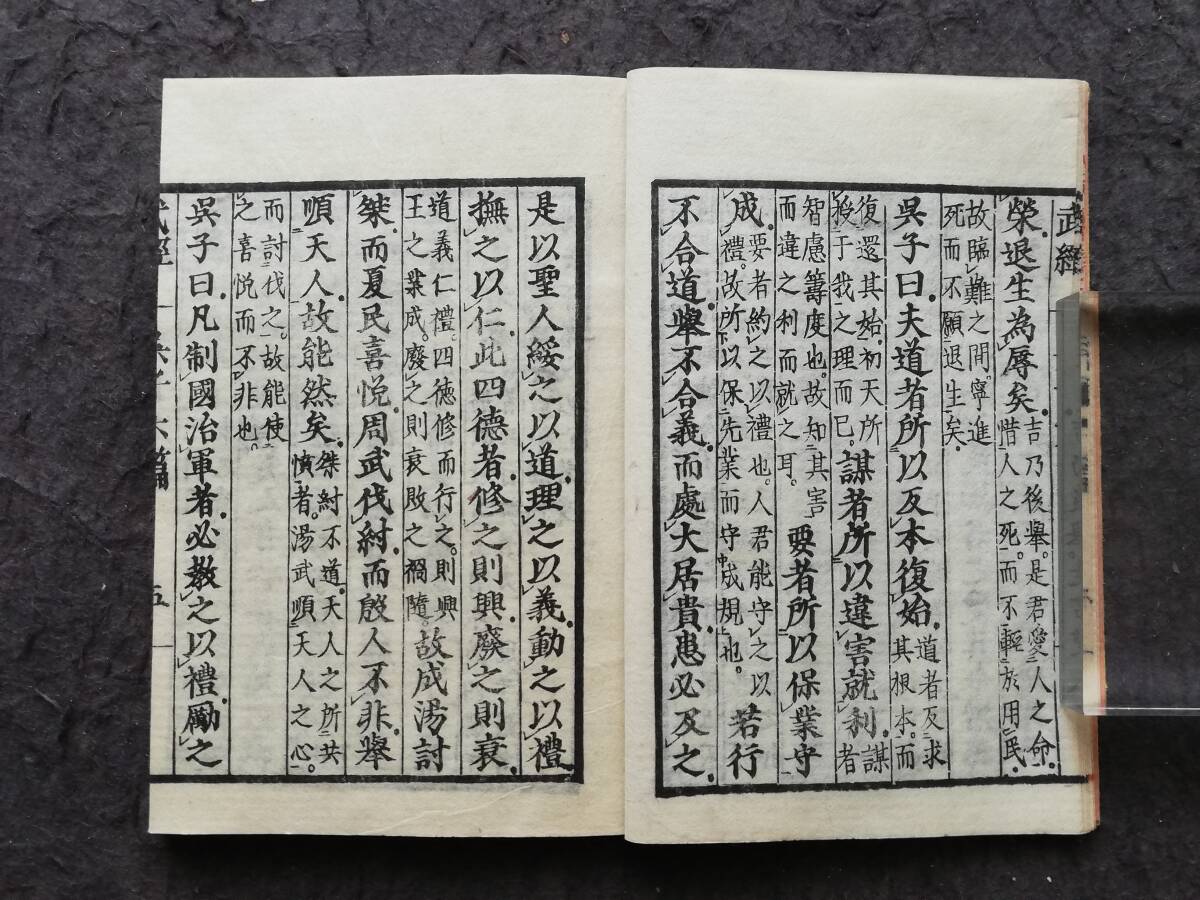 武經
榮退生為辱矣。吉乃後舉。是君愛人之命。
惜人之死。而不輕於用民。
故臨難之間寧進
死而不願退生矣。
吳子曰。夫道者所以反本復始。道者反求
其根本。而
復還其始。初天所
殺于我之理而已。謀者所以違害就利。謀
者
智慮籌度也。故知其害。
而違之利而就之耳。要者所以保業守
成。要者約之以禮也。人君能守之以
禮。故所以保先業而守成規也。若行
不合道。舉不合義。而處大居貴。患必及之。
是以聖人綏之以道。理之以義。動之以禮。
撫之以仁。此四德者。修之則興。廢之則衰。
道義仁禮。四德修而行之。則興
王之業成。廢之則衰敗之禍隨。故成湯討
桀而夏民喜悅。周武伐紂。而殷人不非。舉
順天人。故能然矣。桀紂不道。天人之所共
憤者。湯武順天人之心。
而討伐之。故能使
之喜悅而不非也。
吳子曰。凡制國治軍者。必教之以禮。勵之